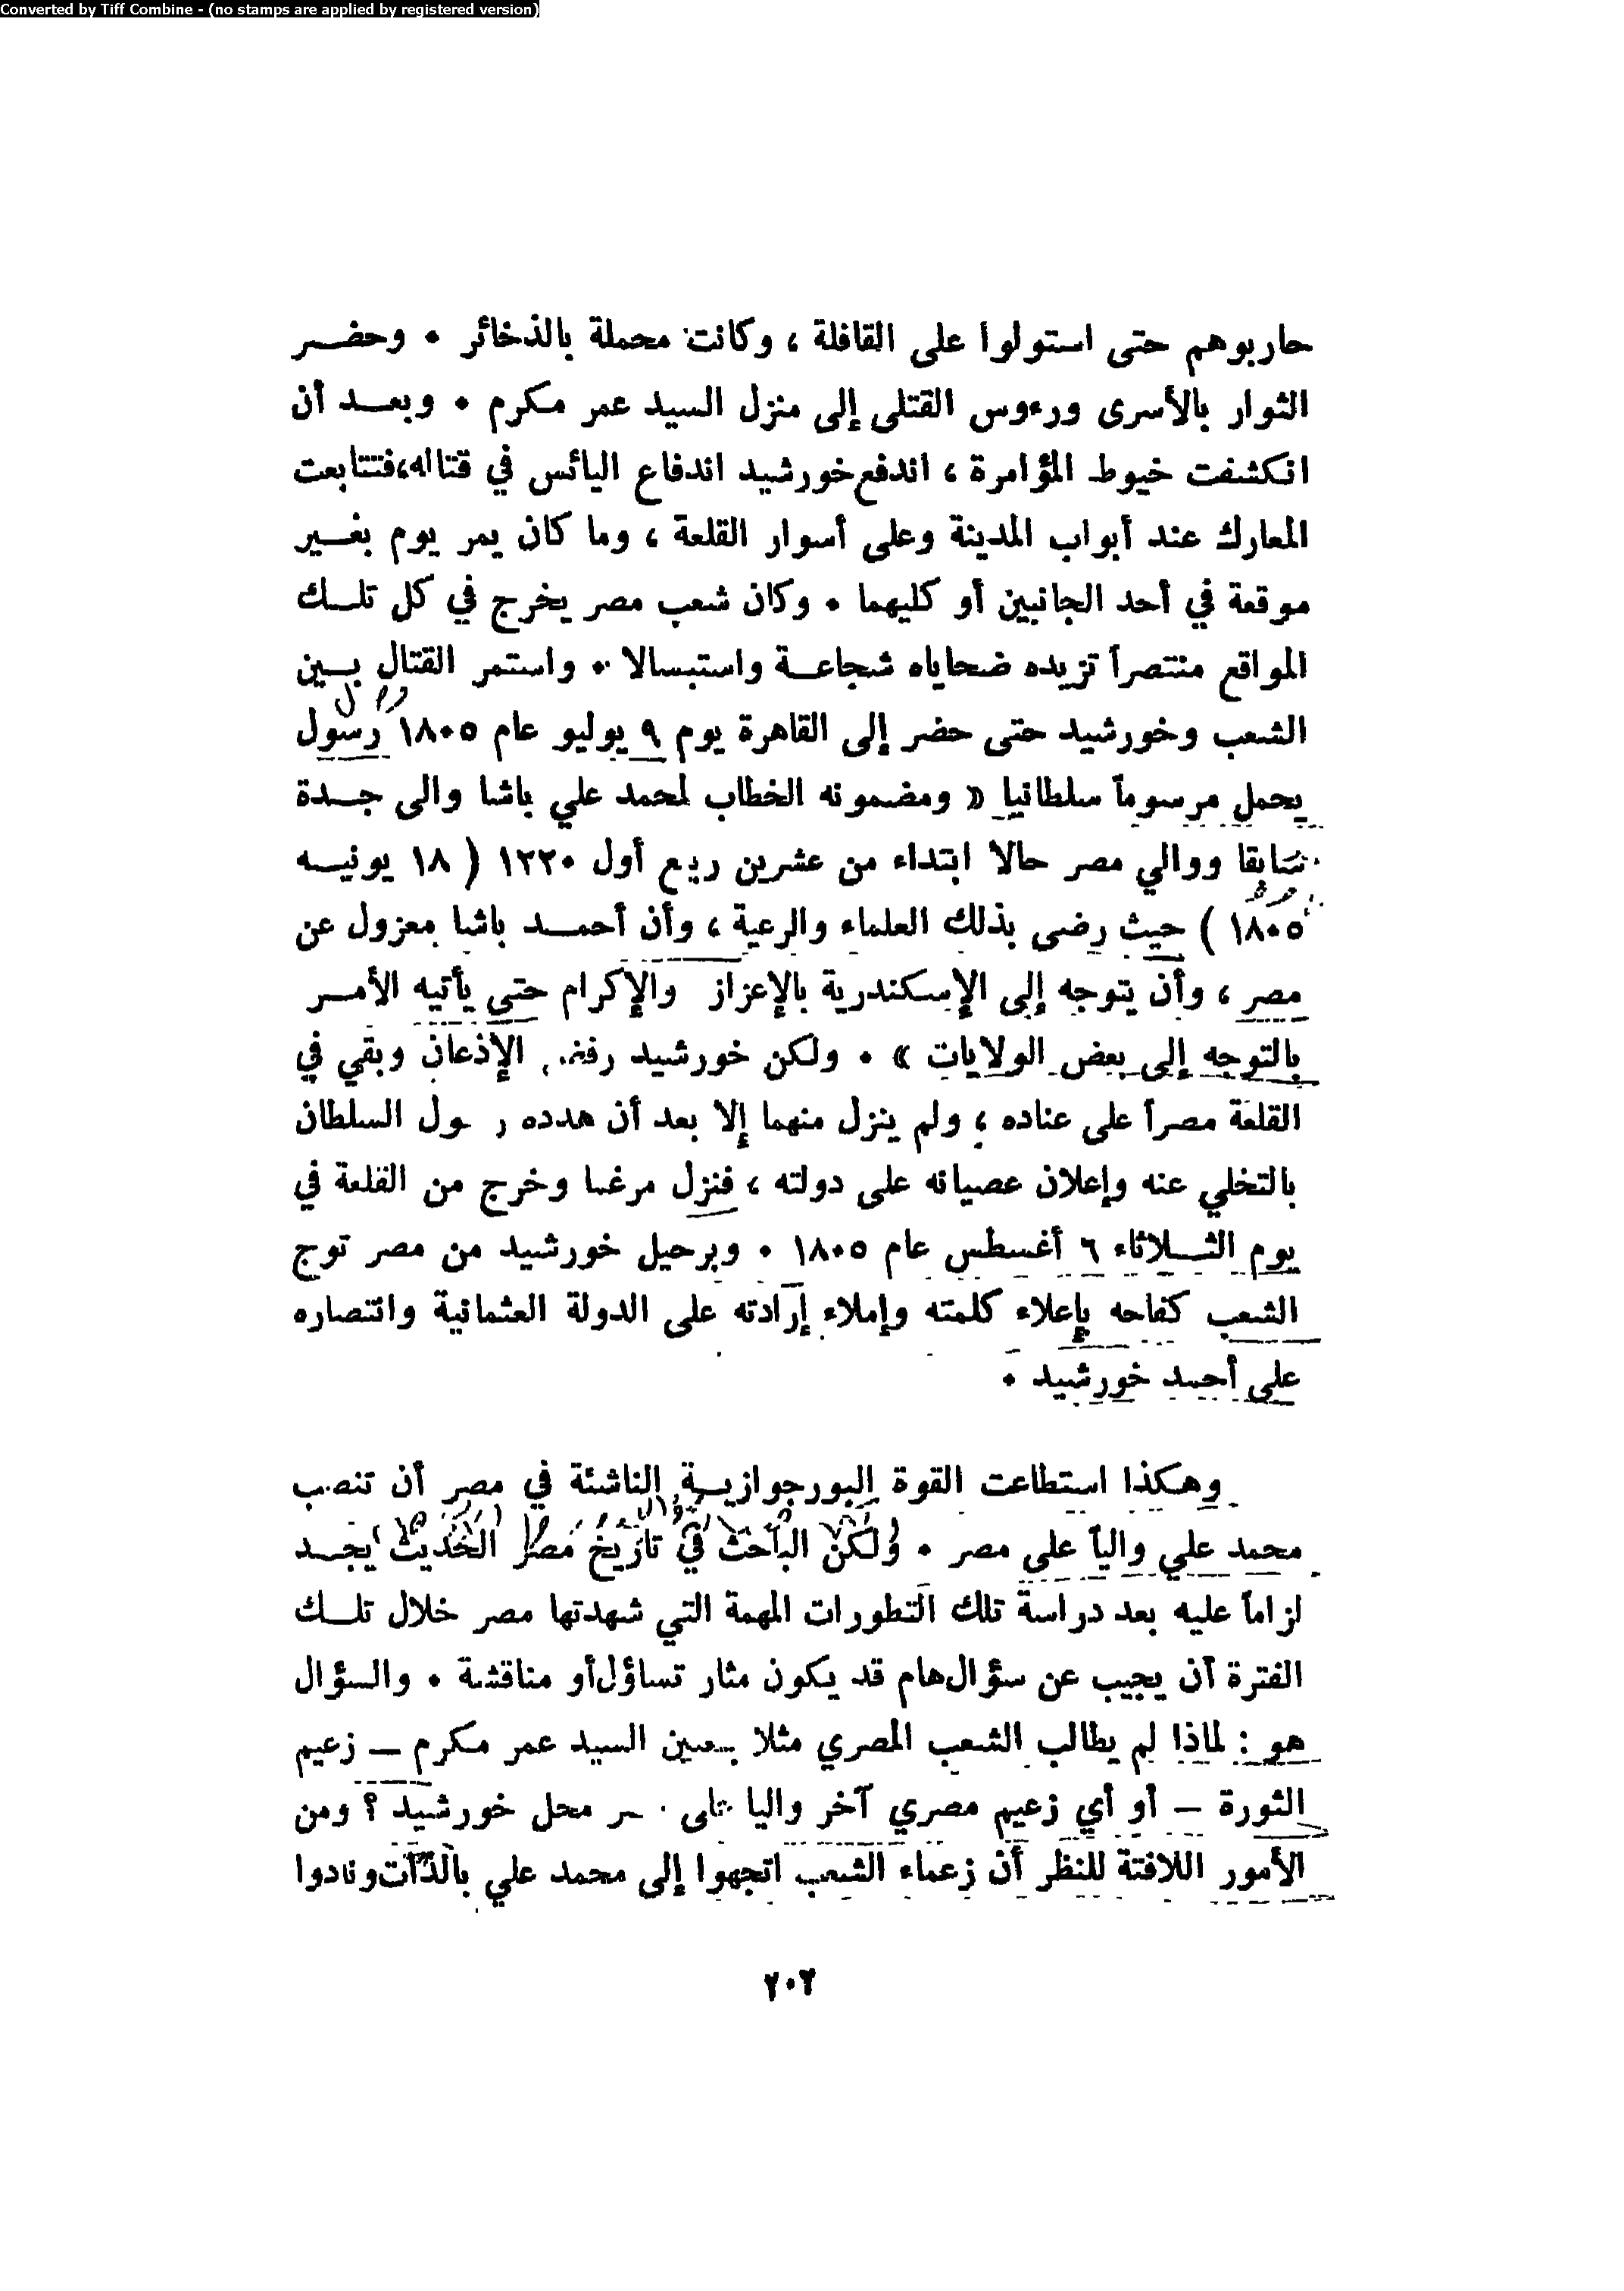 Converted by Tiff Combine - (no stamps are applied by registered version)
حاربوهم حتى استولوا على القافلة ، وكانت محملة بالذخائر • وحضــر
الثوار بالأسرى ورءوس القتلى إلى منزل السيد عمر مكرم • وبعــد أن
انكشفت خيوط المؤامرة ، اندفع خورشيد اندفاع اليائس في قتاله،فتتابعت
المعارك عند أبواب المدينة وعلى أسوار القلعة ، وما كان يمر يوم بغــير
موقعة في أحد الجانبين أو كليهما • وكان شعب مصر يخرج في كل تلــك
المواقع منتصراً تزيده ضحاياه شجاعــة واستبسالا • واستمر القتال بــين
الشعب وخورشيد حتى حضر إلى القاهرة يوم ٩ يوليو عام ١٨٠٥ رسول
يحمل مرسوماً سلطانيا « ومضمونه الخطاب لمحمد علي باشا والى جــدة
سابقا ووالي مصر حالا ابتداء من عشرين ربيع أول ١٢٢٠ ( ١٨ يونيــه
١٨٠٥ ) حيث رضى بذلك العلماء والرعية ، وأن أحمــد باشا معزول عن
مصر ، وأن يتوجه إلى الإسكندرية بالإعزاز والإكرام حتى يأتيه الأمــر
بالتوجه إلى بعض الولايات » • ولكن خورشيد الإذعان وبقي في
القلعة مصراً على عناده ، ولم ينزل منهما إلا بعد أن هدده السلطان
بالتخلي عنه وإعلان عصيانه على دولته ، فنزل مرغما وخرج من القلعة في
يوم الثــلاثاء ٦ أغسطس عام ١٨٠٥ • وبرحيل خورشيد من مصر توج
الشعب كفاحه بإعلاء كلمته وإملاء إرادته على الدولة العثمانية وانتصاره
على أحمد خورشيد •
وهكذا استطاعت القوة البورجوازيــة الناشئة في مصر أن تنصب
محمد علي والياً على مصر • ولكن الباحث في تاريخ مصر الحديث يجــد
لزاماً عليه بعد دراسة تلك التطورات المهمة التي شهدتها مصر خلال تلــك
الفترة أن يجيب عن سؤال هام قد يكون مثار تساؤل أو مناقشة • والسؤال
هو : لماذا لم يطالب الشعب المصري مثلا السيد عمر مكرم – زعيم
الثورة – أو أي زعيم مصري آخر واليا محل خورشيد ؟ ومن
الأمور اللافتة للنظر أن زعماء الشعب اتجهوا إلى محمد علي بالذات ونادوا
٢٠٢